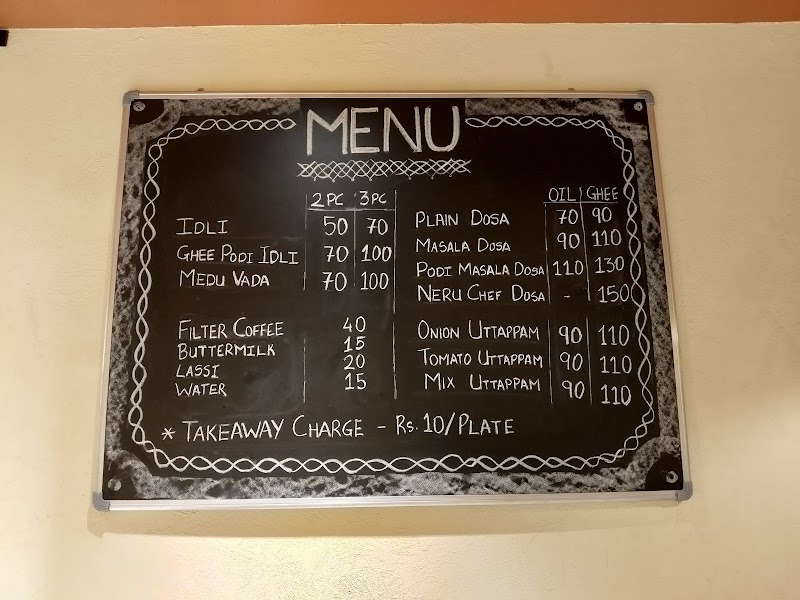 MENU
2PC 3PC
IDLI 50 70
GHEE PODI IDLI 70 100
MEDU VADA 70 100
FILTER COFFEE 40
BUTTERMILK 15
LASSI 20
WATER 15
OIL GHEE
PLAIN DOSA 70 90
MASALA DOSA 90 110
PODI MASALA DOSA 110 130
NERU CHEF DOSA - 150
ONION UTTAPPAM 90 110
TOMATO UTTAPPAM 90 110
MIX UTTAPPAM 90 110
* TAKEAWAY CHARGE - Rs. 10/PLATE